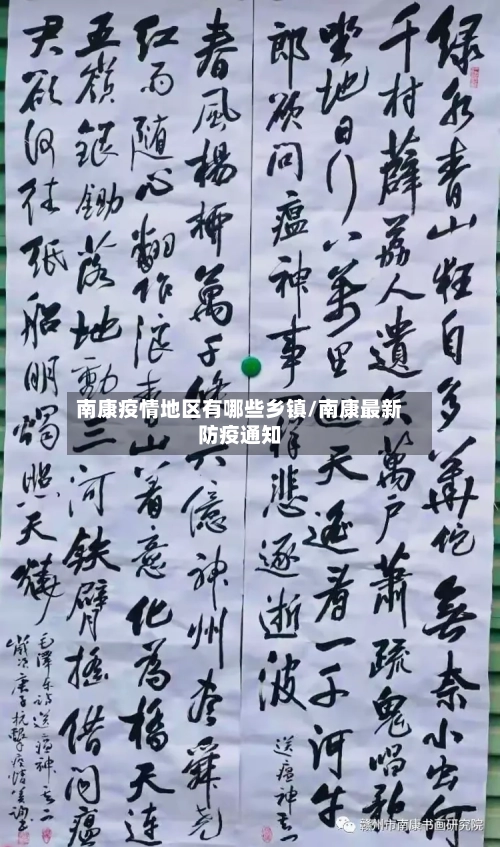 绿水青山枉自多華佗無奈小虫何
千村薜荔人遺矢萬户蕭疏鬼唱歌
坐地日行八萬里巡天遥看一千河牛
郎欲问瘟神事样悲逐逝波
送瘟神其一
春風楊柳萬千條六億神州尽舜堯
红雨随心翻作浪青山着意化為橋天連
五嶺銀鋤落地動三河铁臂摇借问瘟
君欲何往纸船明燭照天燒
毛澤东诗送瘟神其二
歲次庚子抗擊疫情
南康疫情地区有哪些乡镇/南康最新
防疫通知
赣州市南康书画研究院